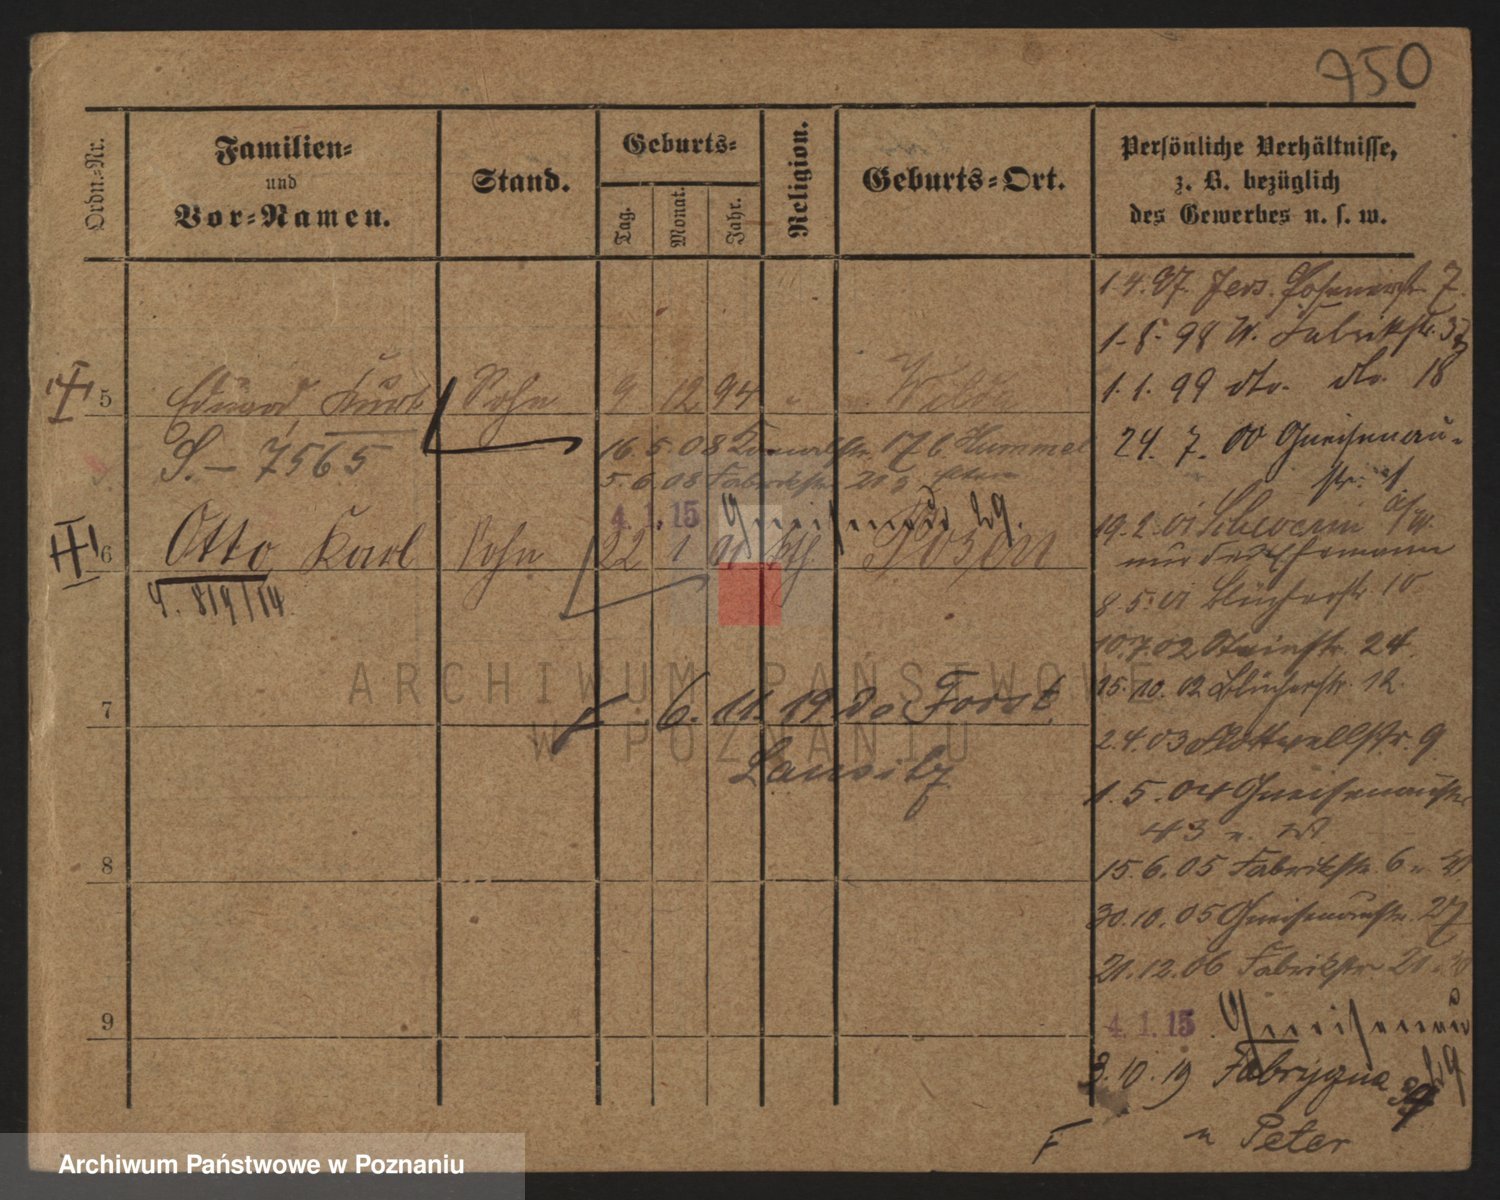 750
Ordn.-Nr.
Familien-
und
Vor-Namen.
Stand.
Geburts-
Tag.
Monat.
Jahr.
Religion.
Geburts-Ort.
Persönliche Verhältnisse,
z. B. bezüglich
des Gewerbes u. s. w.
1.4.97. Jers. Posenerstr. 7.
1.8.98 W. Fabrikstr. 37
1.1.99 dto. dto. 18
24.7.00 Gneisenau-
str.
5 Eduard, Kurt Sohn 9 12 94 Wilda
S. – 7565
16.5.08 17 b. Hummel
5.6.08 Fabrikstr. 21
4.1.15 Gneisenau 29.
6 Otto Karl Sohn 22 1 Posen
19.2.01
nur der Ehemann
8.5.01 Blücherstr. 10
10.7.02 Steinstr. 24.
15.10.02 Blücherstr. 12.
7
6.11.19 do Forst
Lausitz
2.4.03 Flottwellstr. 9
1.5.04 Gneisenaustr.
43
8
15.6.05 Fabrikstr. 6
30.10.05 Gneisenaustr. 27
21.12.06 Fabrikstr. 21
9
4.1.15 Gneisenau
29
3.10.19 Fabryczna
F u Peter
ARCHIWUM PAŃSTWOWE
W POZNANIU
Archiwum Państwowe w Poznaniu